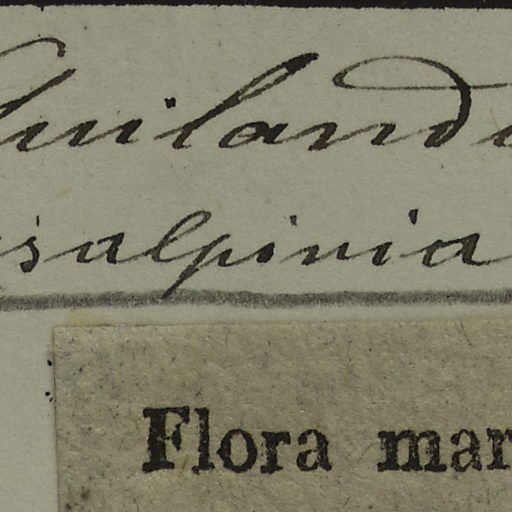 uiland
salpinia
Flora mar